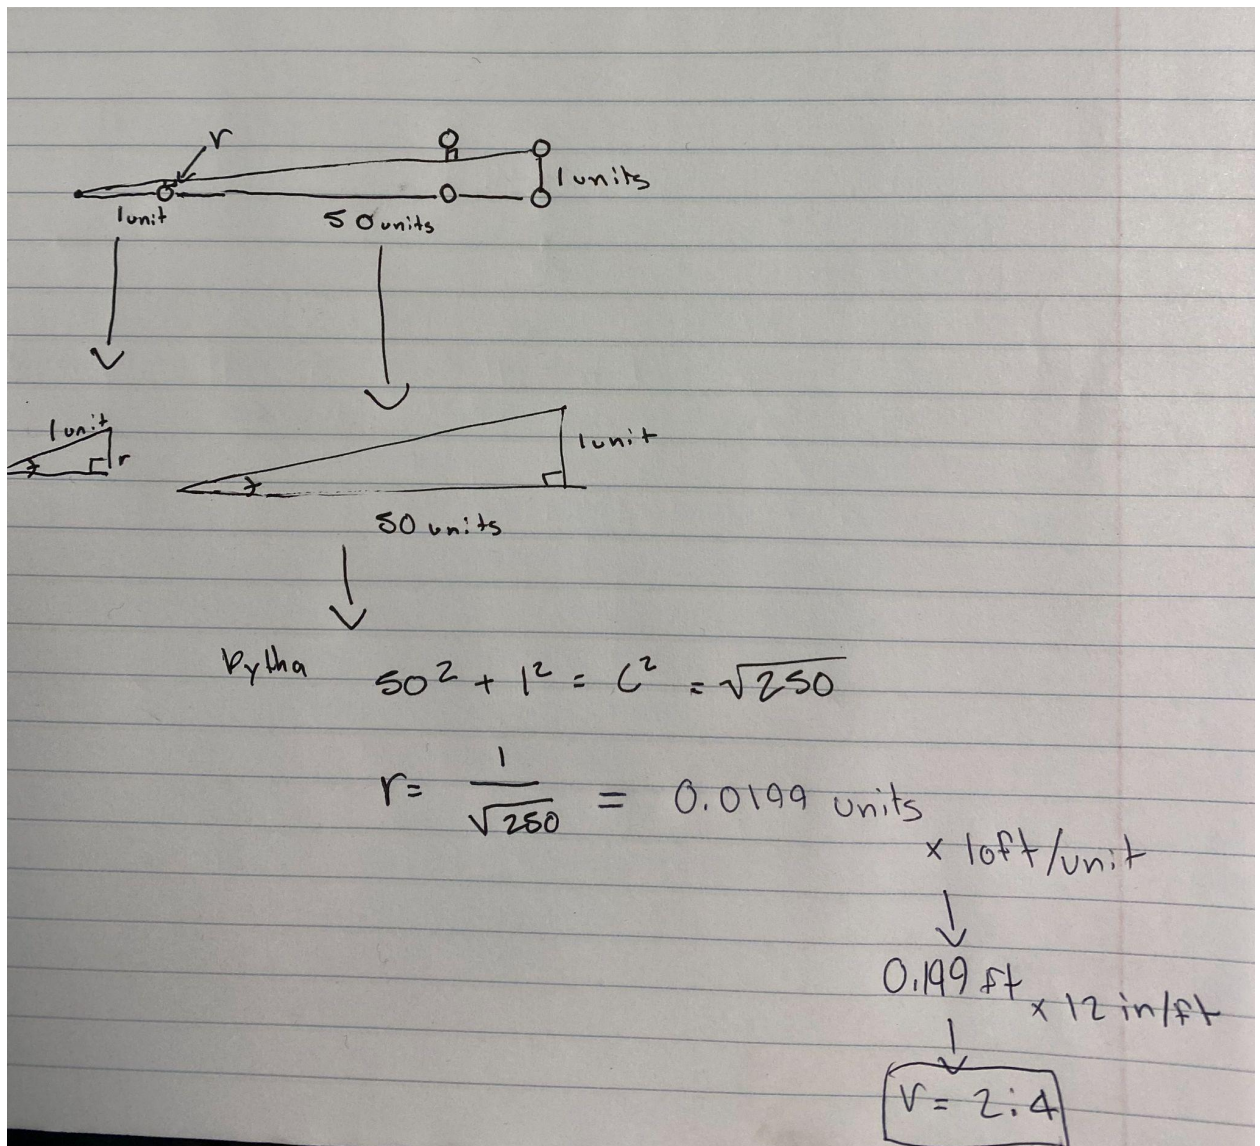 r
1 units
1 unit
50 units
1 unit
r
1 unit
50 units
pytha 50² + 1² = C² = √250
r = 1/√250 = 0.0199 units
x 10ft/unit
0.199 ft x 12 in/ft
r = 2.4